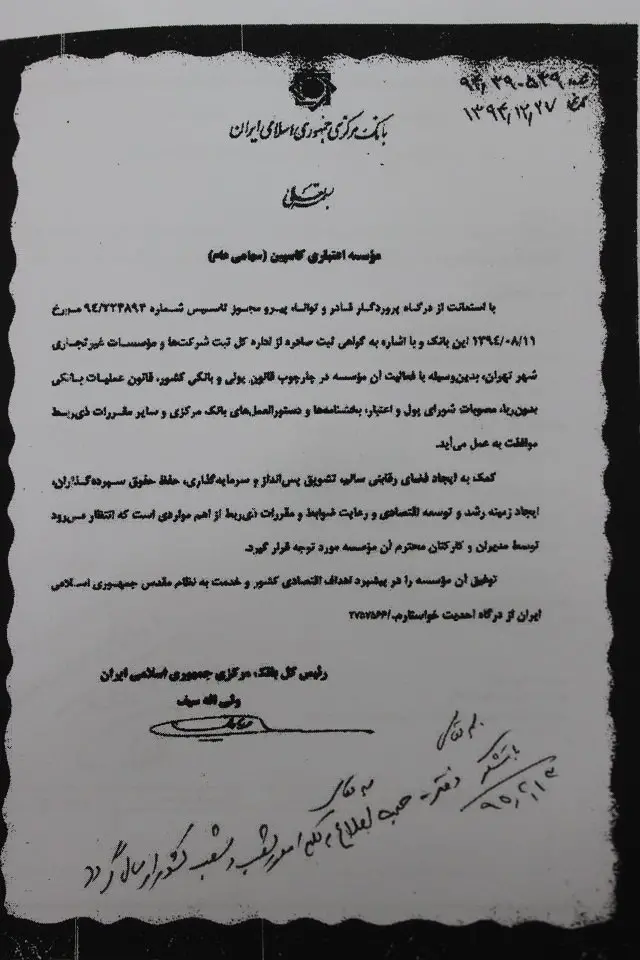 ۹۴/۳۹۰۵۴۹
۱۳۹۴/۱۲/۲۷
بانک مرکزی جمهوری اسلامی ایران
بسمه تعالی
مؤسسه اعتباری کاسپین (سهامی عام)
با استعانت از درگاه پروردگار قادر و توانا، پیرو مجوز تاسیس شماره ۹٤/۲۲۳۸۹۳ مورخ
۱۳۹٤/۰۸/۱۱ این بانک و با اشاره به گواهی ثبت صادره از اداره کل ثبت شرکت‌ها و مؤسسات غیرتجاری
شهر تهران، بدین‌وسیله با فعالیت آن مؤسسه در چارچوب قانون پولی و بانکی کشور، قانون عملیات بانکی
بدون‌ربا، مصوبات شورای پول و اعتبار، بخشنامه‌ها و دستورالعمل‌های بانک مرکزی و سایر مقررات ذی‌ربط
موافقت به عمل می‌آید.
کمک به ایجاد فضای رقابتی سالم، تشویق پس‌انداز و سرمایه‌گذاری، حفظ حقوق سپرده‌گذاران،
ایجاد زمینه رشد و توسعه اقتصادی و رعایت ضوابط و مقررات ذی‌ربط از اهم مواردی است که انتظار می‌رود
توسط مدیران و کارکنان محترم آن مؤسسه مورد توجه قرار گیرد.
توفیق آن مؤسسه را در پیشبرد اهداف اقتصادی کشور و خدمت به نظام مقدس جمهوری اسلامی
ایران از درگاه احدیت خواستارم./۲۷۵۷۵۶۳
رئیس کل بانک مرکزی جمهوری اسلامی ایران
ولی اله سیف
بسمه تعالی
با تشکر
۹۵/۲/۱۳
بسمه تعالی
دفتر جهت اطلاع به کلیه امور شعب و شعب کشور ارسال گردد